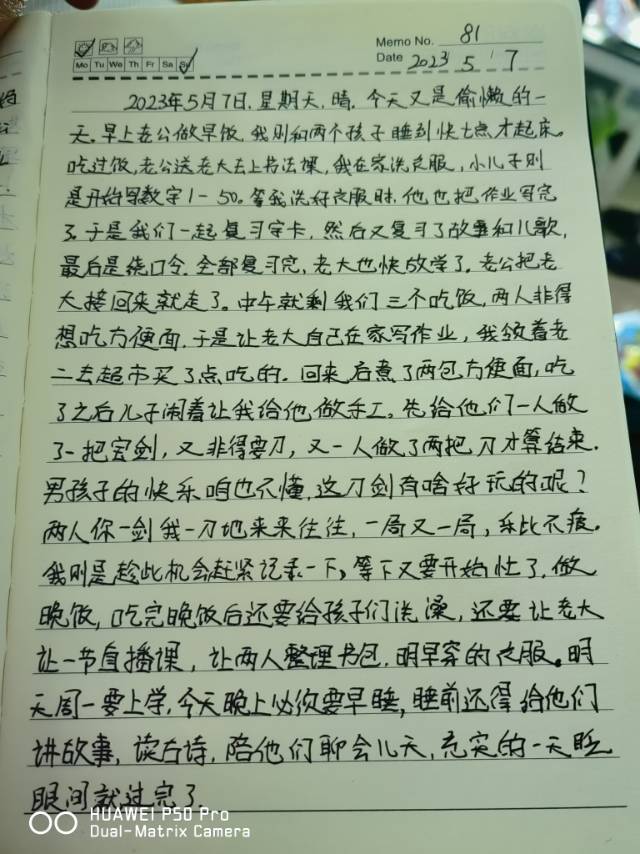 Memo No. 81
Mo Tu We Th Fr Sa Su
Date 2023 5 7
2023年5月7日,星期天,晴.今天又是偷懒的一
天.早上老公做早饭,我则和两个孩子睡到快七点才起床。
吃过饭,老公送老大去上书法课,我在家洗衣服,小儿子则
是开始写数字1-50。等我洗好衣服时,他也把作业写完
了.于是我们一起复习字卡,然后又复习了故事和儿歌,
最后是绕口令.全部复习完,老大也快放学了.老公把老
大接回来就走了。中午就剩我们三个吃饭,两人非得
想吃方便面.于是让老大自己在家写作业,我领着老
二去超市买了点吃的.回来后煮了两包方便面,吃
了之后儿子闹着让我给他做手工.先给他们一人做
了一把宝剑,又非得要刀,又一人做了两把刀才算结束.
男孩子的快乐咱也不懂,这刀剑有啥好玩的呢?
两人你一剑我一刀地来来往往,一局又一局,乐比不疲.
我则是趁此机会赶紧记录一下,等下又要开始忙了.做
晚饭,吃完晚饭后还要给孩子们洗澡,还要让老大
让一节直播课,让两人整理书包.明早穿的衣服。明
天周一要上学,今天晚上必须要早睡,睡前还得给他们
讲故事,读古诗,陪他们聊会儿天,充实的一天眨
眼间就过完了.
HUAWEI P50 Pro
Dual-Matrix Camera